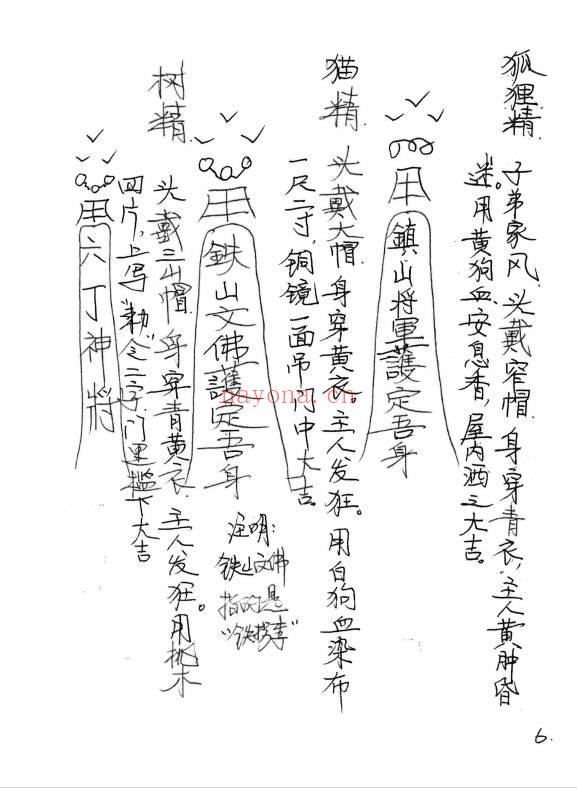 狐狸精
子弟家风，头戴窄帽，身穿青衣，主人黄肿昏
迷。用黄狗血、安息香，屋内洒之大吉。
鎮山将軍護定吾身
猫精
头戴大帽，身穿黄衣，主人发狂。用白狗血染布
一尺二寸，铜镜一面吊门中大吉。
鉄山文佛護定吾身
注明：
铁山文佛
指的是
"铁拐李"
树精
头戴三山帽，身穿青黄衣，主人发狂。用桃木
四片，上写"勅"令二字，门里槛下大吉
六丁神將
nayona.cn
6.